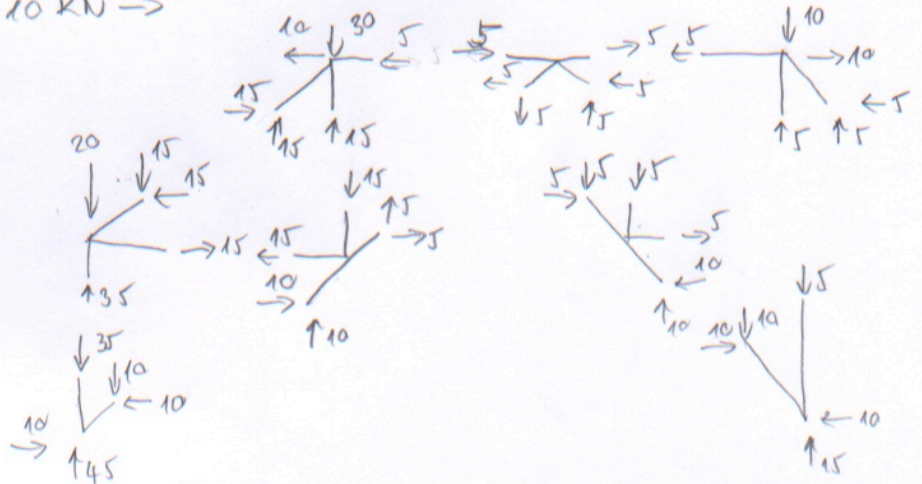 10 KN →
10 ← ↓ 30 5 ←
15 → ↑ 15 ↑ 15
5 → → 5
← 5 ← 5
↓ 5 ↑ 5
← 5 ↓ 10 → 10
← 5
↑ 5 ↑ 5
20 ↓ ↓ 15 ← 15
→ 15
↑ 35
↓ 15 ↑ 5
15 ← → 5
10 →
↑ 10
5 → ↓ 5 ↓ 5
→ 5
← 10
↑ 10
↓ 35 ↓ 10
← 10
10 →
↑ 45
10 → ↓ 10 ↓ 5
← 10
↑ 15